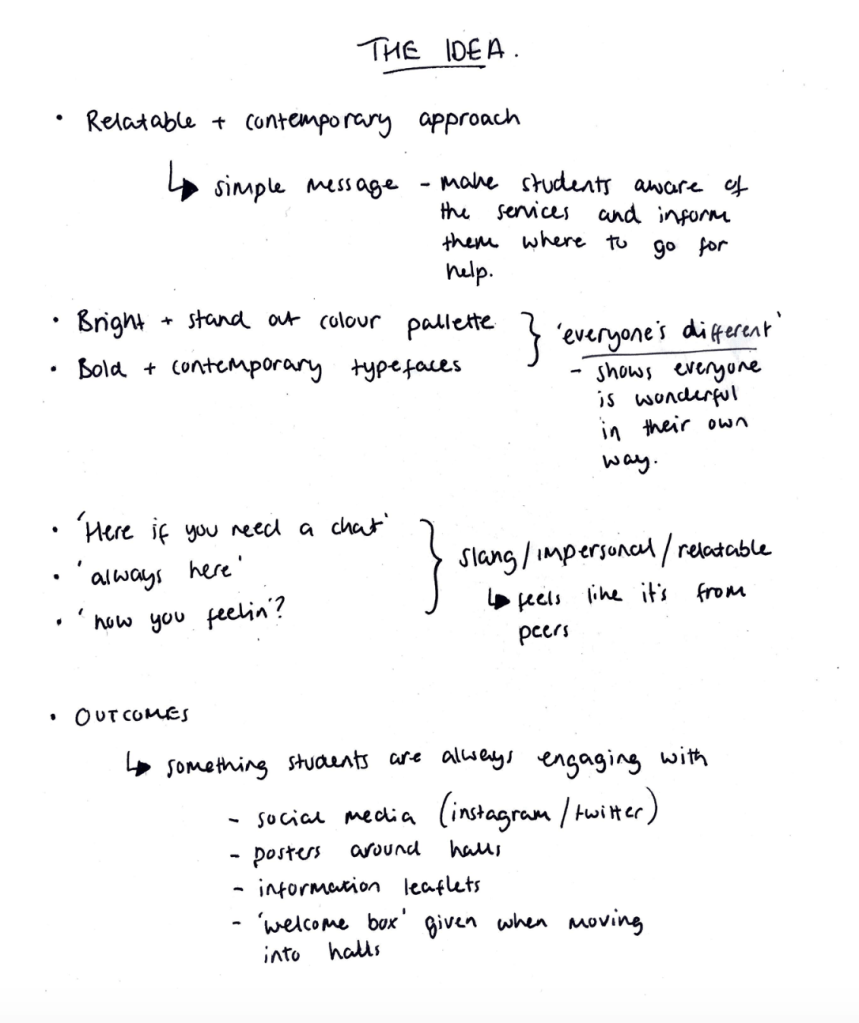 THE IDEA.
• Relatable + contemporary approach
↳ simple message - make students aware of
the services and inform
them where to go for
help.
• Bright + stand out colour pallette
• Bold + contemporary typefaces
} 'everyone's different'
- shows everyone
is wonderful
in their own
way.
• 'Here if you need a chat'
• 'always here'
• 'how you feelin'?
} slang/impersonal/relatable
↳ feels like it's from
peers
• OUTCOMES
↳ something students are always engaging with
- social media (instagram/twitter)
- posters around halls
- information leaflets
- 'welcome box' given when moving
into halls